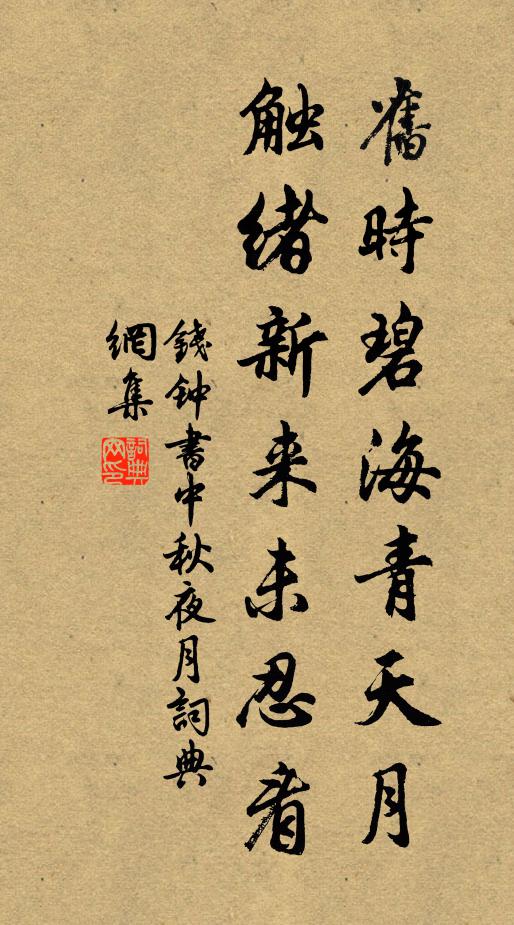 舊時碧海青天月
触緒新来未忍看
錢钟書中秋夜月詞典
網集
詞典网印